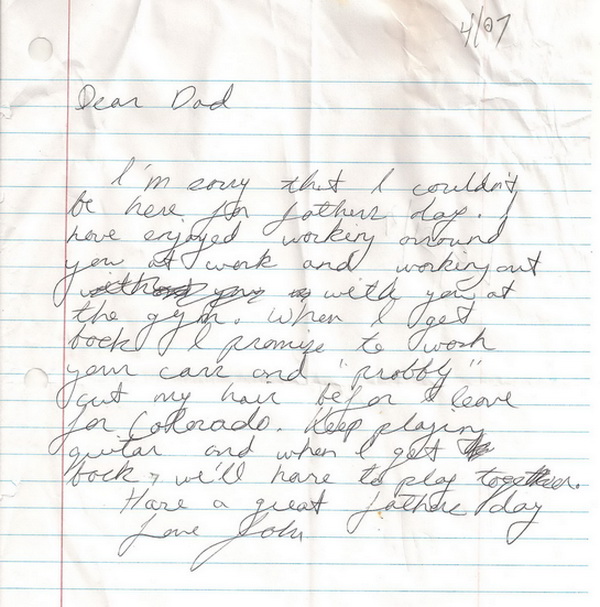 4/07
Dear Dad
I'm sorry that I couldn't
be here for fathers day. I
have enjoyed working around
you at work and working out
with you at
the gym. When I get
back I promise to wash
your car and "probbly"
cut my hair befor I leave
for Colorado. Keep playing
guitar and when I get
back, we'll have to play together.
Have a great fathers day
Love John